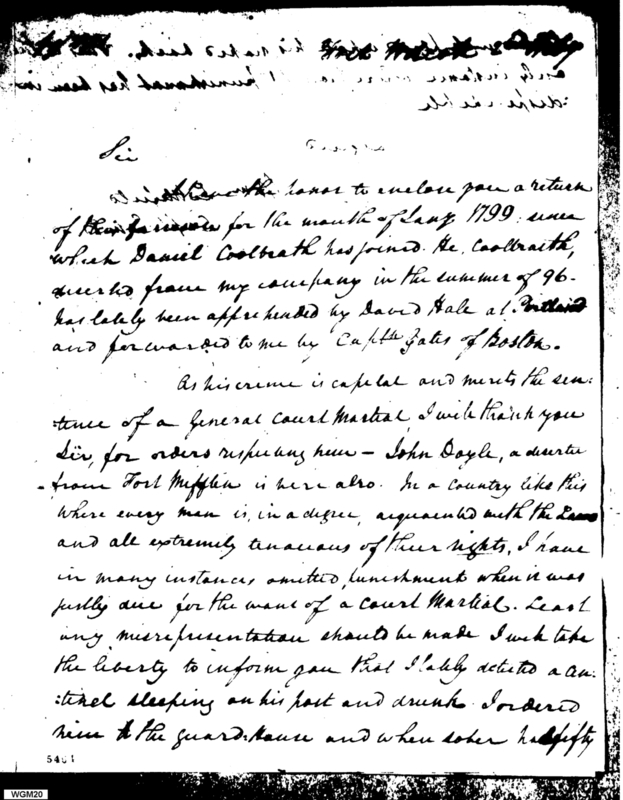 his naked back. This
only instance where punishment has been in=
:dispensible
Sir
I have the honor to enclose you a return
of the Garrison for the month of Jany 1799. since
which Daniel Coolbrath has joined. He, Coolbraith,
deserted from my company in the summer of 96-
has lately been apprehended by David Hale at Portland
and forwarded to me by Captn Gates of Boston.
As his crime is capital and merits the sen:
:tence of a General Court Martial, I will thank you
Sir, for orders respecting him - John Doyle, a deserter
from Fort Mifflin is here also. In a country like this
where every man is, in a degree, acquainted with the Laws
and all extremely tenacious of their rights, I have
in many instances omitted punishment when it was
justly due for the want of a Court Martial. Least
any misrepresentation should be made I will take
the liberty to inform you that I lately detected a cen:
:tinel sleeping on his post and drunk. I ordered
him to the guard:House and when sober had fifty
5401
WGM20